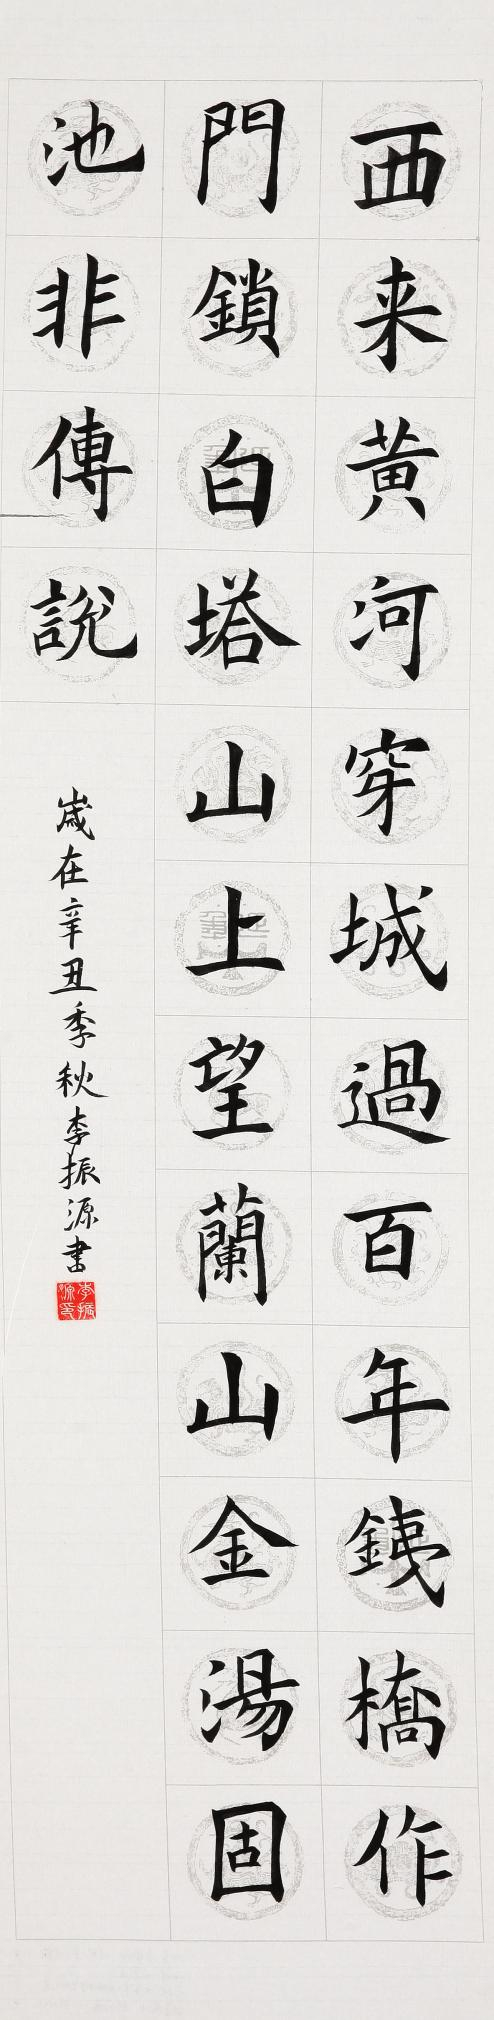 西来黄河穿城過百年銕橋作
門鎖白塔山上望蘭山金湯固
池非傳說
歲在辛丑季秋李振源書
李振源印